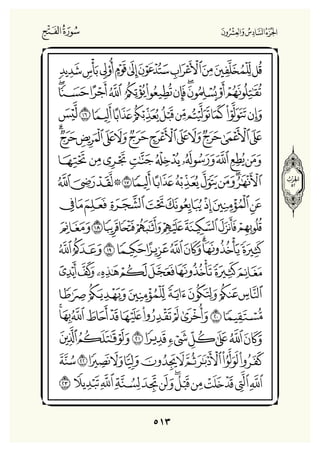 الجُزْءُ السَّادِسُ وَالعِشْرُونَ
سُورَةُ الفَتْحِ
قُل لِّلْمُخَلَّفِينَ مِنَ ٱلْأَعْرَابِ سَتُدْعَوْنَ إِلَىٰ قَوْمٍ أُو۟لِى بَأْسٍ شَدِيدٍ
تُقَٰتِلُونَهُمْ أَوْ يُسْلِمُونَ ۖ فَإِن تُطِيعُوا۟ يُؤْتِكُمُ ٱللَّهُ أَجْرًا حَسَنًا ۖ
وَإِن تَتَوَلَّوْا۟ كَمَا تَوَلَّيْتُم مِّن قَبْلُ يُعَذِّبْكُمْ عَذَابًا أَلِيمًا ١٦ لَّيْسَ
عَلَى ٱلْأَعْمَىٰ حَرَجٌ وَلَا عَلَى ٱلْأَعْرَجِ حَرَجٌ وَلَا عَلَى ٱلْمَرِيضِ حَرَجٌ ۗ
وَمَن يُطِعِ ٱللَّهَ وَرَسُولَهُۥ يُدْخِلْهُ جَنَّٰتٍ تَجْرِى مِن تَحْتِهَا
ٱلْأَنْهَٰرُ ۖ وَمَن يَتَوَلَّ يُعَذِّبْهُ عَذَابًا أَلِيمًا ١٧ ۞ لَّقَدْ رَضِىَ ٱللَّهُ
الحزب ٥٢
عَنِ ٱلْمُؤْمِنِينَ إِذْ يُبَايِعُونَكَ تَحْتَ ٱلشَّجَرَةِ فَعَلِمَ مَا فِى
قُلُوبِهِمْ فَأَنزَلَ ٱلسَّكِينَةَ عَلَيْهِمْ وَأَثَٰبَهُمْ فَتْحًا قَرِيبًا ١٨ وَمَغَانِمَ
كَثِيرَةً يَأْخُذُونَهَا ۗ وَكَانَ ٱللَّهُ عَزِيزًا حَكِيمًا ١٩ وَعَدَكُمُ ٱللَّهُ
مَغَانِمَ كَثِيرَةً تَأْخُذُونَهَا فَعَجَّلَ لَكُمْ هَٰذِهِۦ وَكَفَّ أَيْدِىَ
ٱلنَّاسِ عَنكُمْ وَلِتَكُونَ ءَايَةً لِّلْمُؤْمِنِينَ وَيَهْدِيَكُمْ صِرَٰطًا
مُّسْتَقِيمًا ٢٠ وَأُخْرَىٰ لَمْ تَقْدِرُوا۟ عَلَيْهَا قَدْ أَحَاطَ ٱللَّهُ بِهَا ۚ
وَكَانَ ٱللَّهُ عَلَىٰ كُلِّ شَىْءٍ قَدِيرًا ٢١ وَلَوْ قَٰتَلَكُمُ ٱلَّذِينَ
كَفَرُوا۟ لَوَلَّوُا۟ ٱلْأَدْبَٰرَ ثُمَّ لَا يَجِدُونَ وَلِيًّا وَلَا نَصِيرًا ٢٢ سُنَّةَ
ٱللَّهِ ٱلَّتِى قَدْ خَلَتْ مِن قَبْلُ ۖ وَلَن تَجِدَ لِسُنَّةِ ٱللَّهِ تَبْدِيلًا ٢٣
٥١٣